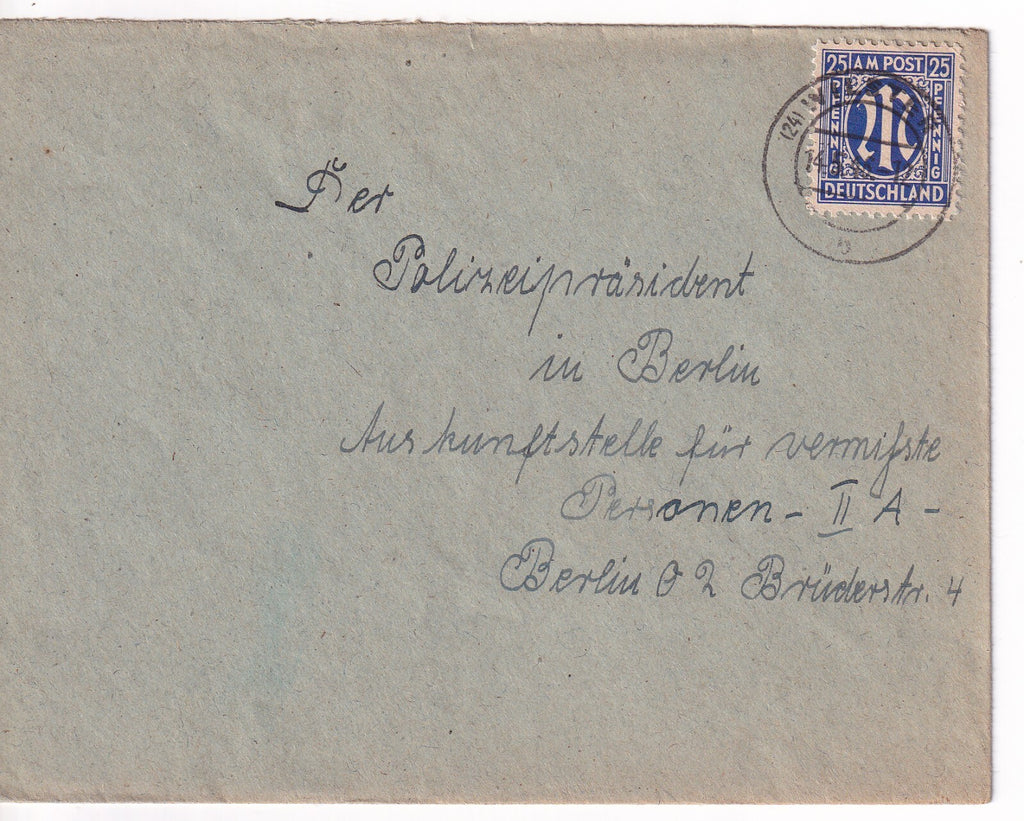 25 AM POST 25
PFENNIG PFENNIG
DEUTSCHLAND
(24)
b
Der
Polizeipräsident
in Berlin
Auskunftstelle für vermißte
Personen - II A -
Berlin O 2 Brüderstr. 4